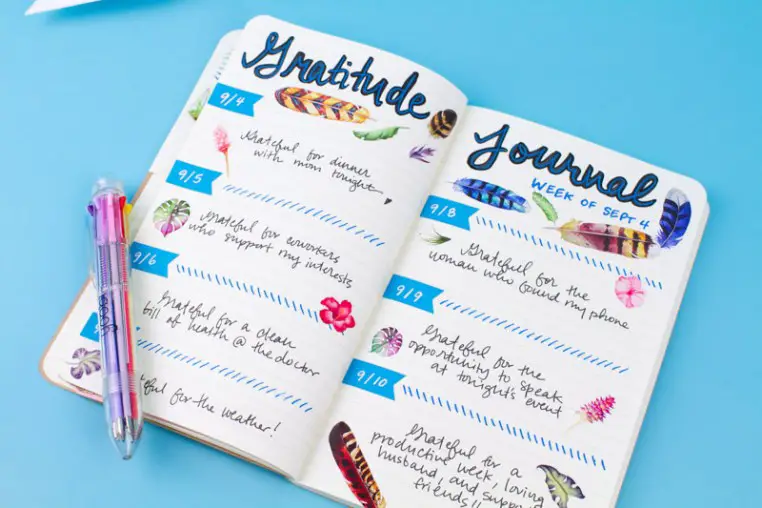 Gratitude
9/4
Grateful for dinner
with mom tonight
9/5
Grateful for coworkers
who support my interests
9/6
Grateful for a clean
bill of health @ the doctor
for the weather!
Journal
WEEK OF SEPT 4
9/8
Grateful for the
woman who found my phone
9/9
Grateful for the
opportunity to speak
at tonight's event
9/10
Grateful for a
productive week, loving
husband, and
friends!!